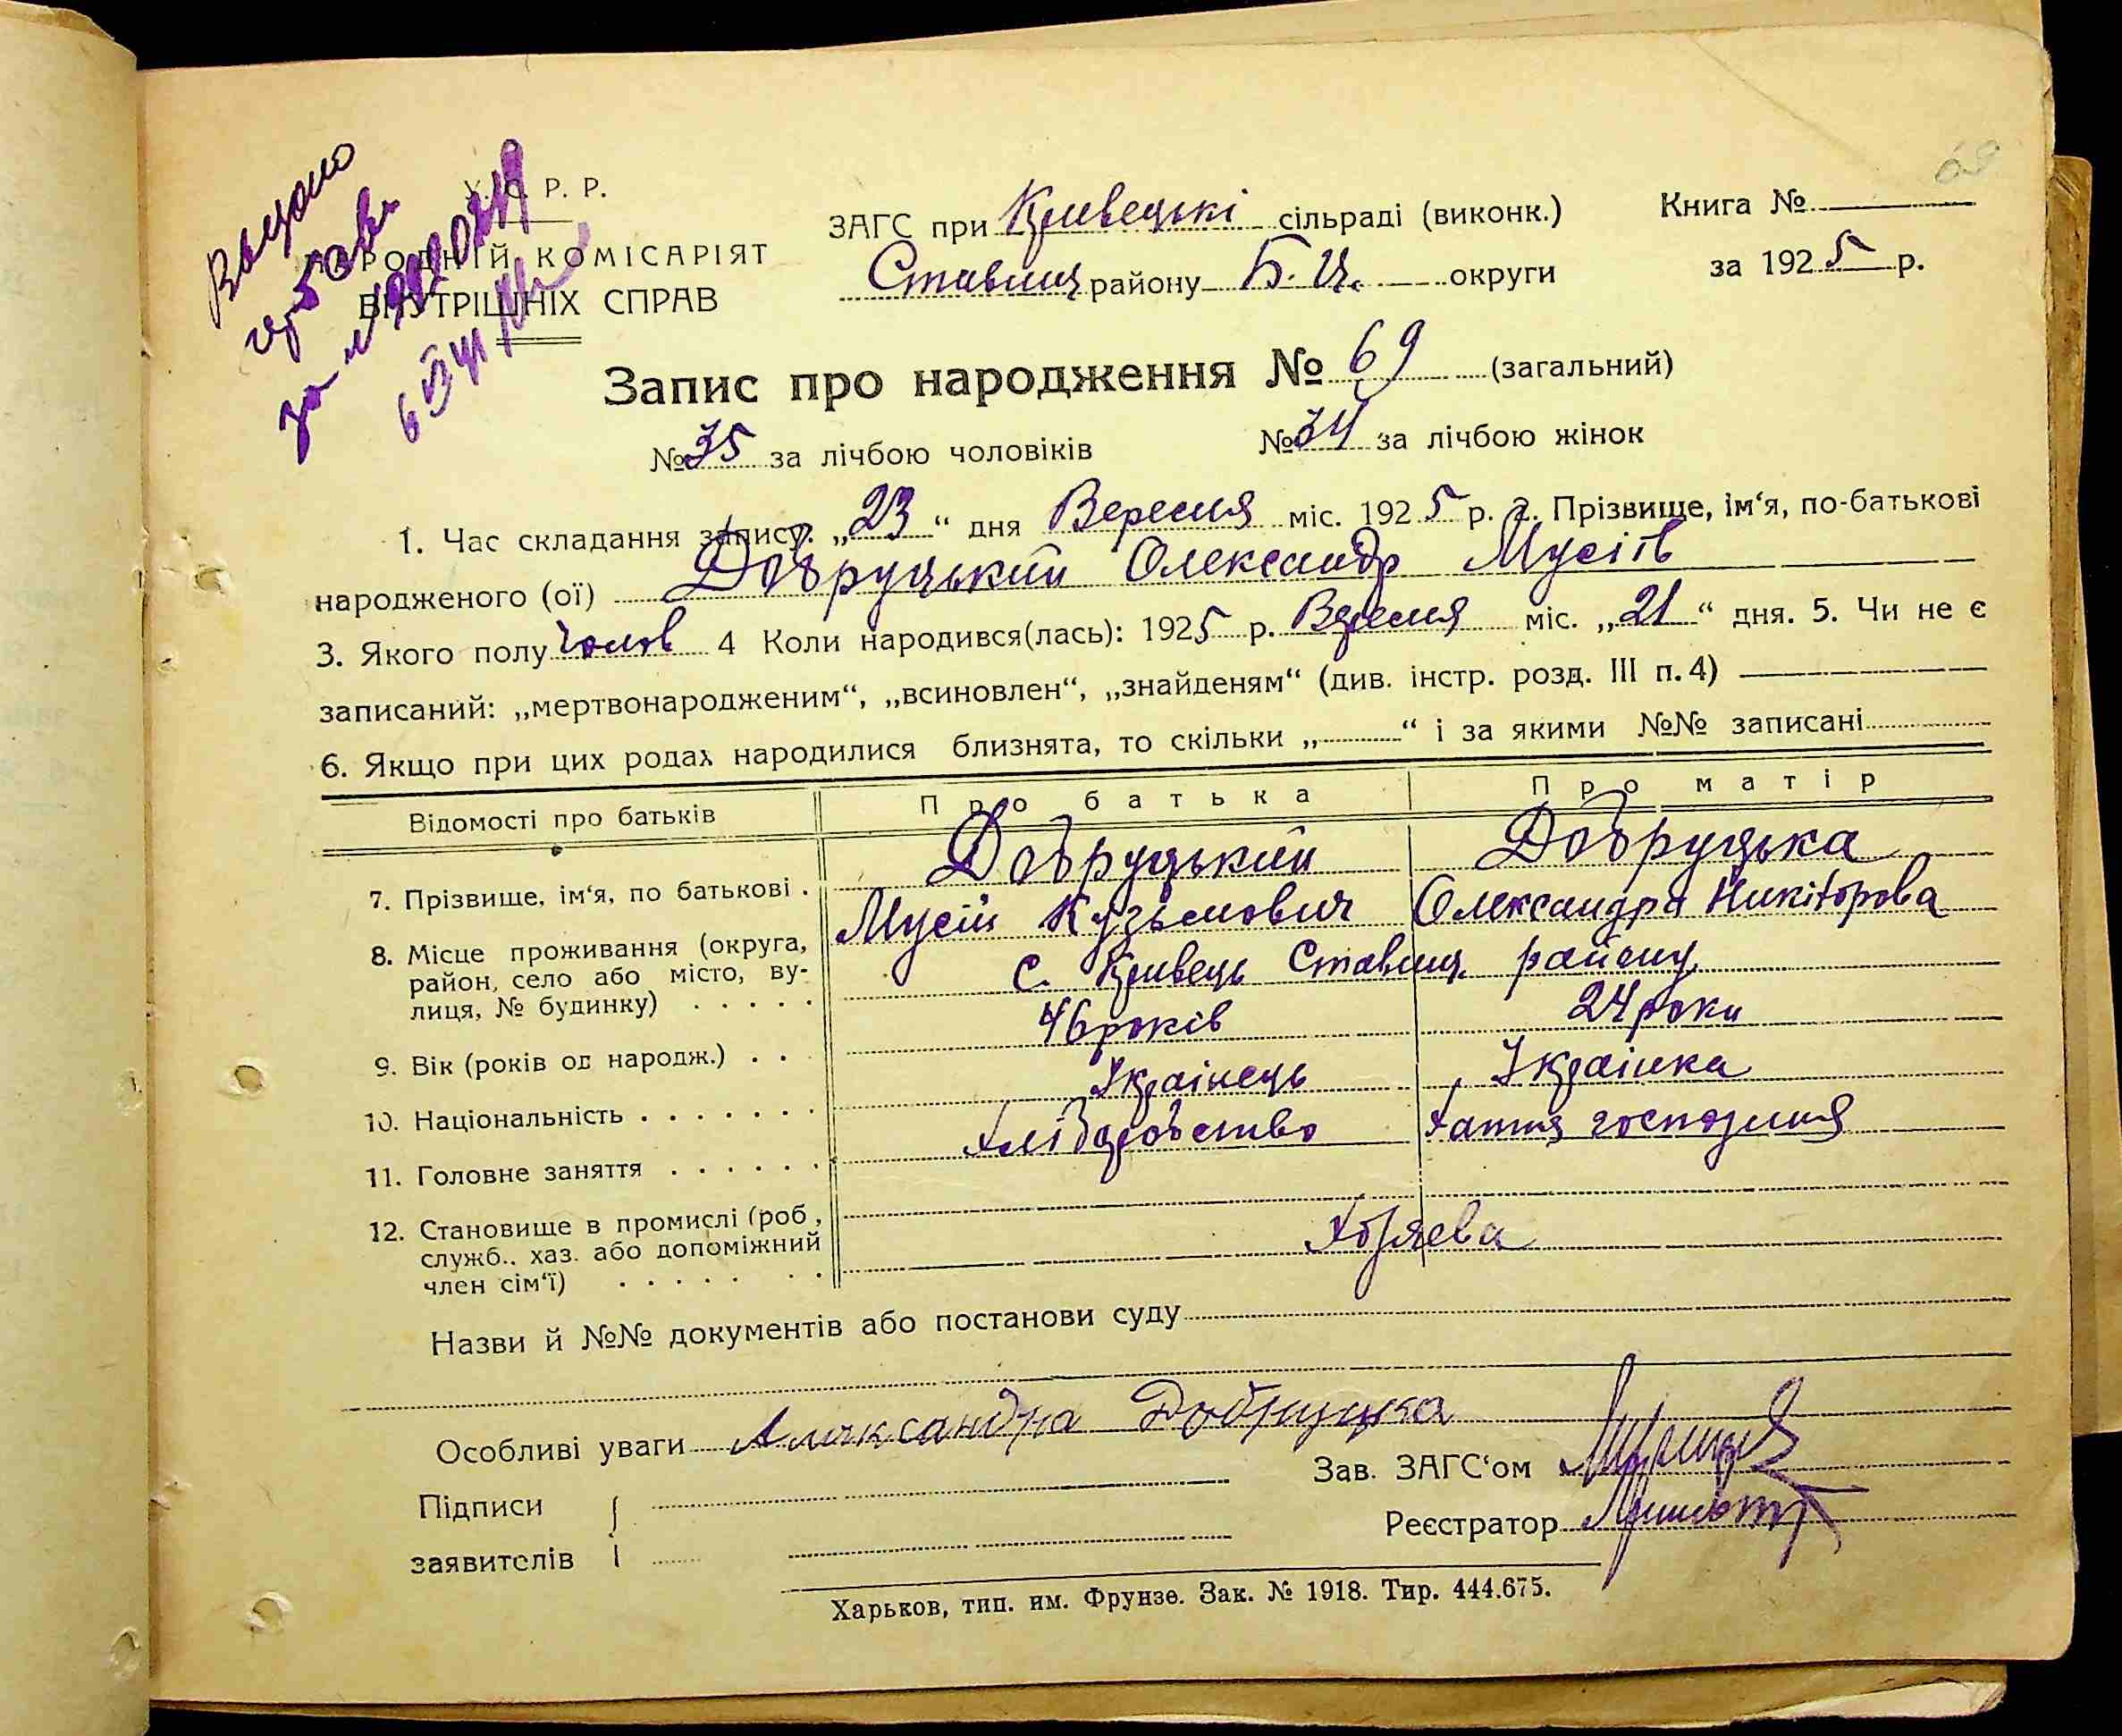 69
Видано
У. С. Р. Р.
НАРОДНІЙ КОМІСАРІЯТ
ВНУТРІШНІХ СПРАВ
ЗАГС при Кривецькі сільраді (виконк.)
Ставищ району Б.Ц. округи
Книга №
за 1925 р.
Запис про народження № 69 (загальний)
№ 35 за лічбою чоловіків № 34 за лічбою жінок
1. Час складання запису. „23“ дня Вересня міс. 1925 р. 2. Прізвище, ім‘я, по-батькові
народженого (ої) Добруцький Олександр Мусіїв
3. Якого полу Чолов 4 Коли народився(лась): 1925 р. Вересня міс. „21“ дня. 5. Чи не є
записаний: „мертвонародженим“, „всиновлен“, „знайденям“ (див. інстр. розд. III п. 4)
6. Якщо при цих родах народилися близнята, то скільки „ “ і за якими №№ записані
Відомості про батьків Про батька Про матір
7. Прізвище, ім‘я, по батькові . Добруцький Добруцька
Мусій Кузьмович Олександра Никіфорова
8. Місце проживання (округа,
район, село або місто, ву-
лиця, № будинку) . . . . .
с. Кривець Ставищ. району
9. Вік (років од народж.) . . 46 років 24 роки
10. Національність . . . . . . . Українець Українка
11. Головне заняття . . . . . . Хліборобство Хатня господиня
12. Становище в промислі (роб,
служб., хаз. або допоміжний
член сім‘ї) . . . . . . .
Хозяєва
Назви й №№ документів або постанови суду
Особливі уваги Александра Добруцка
Підписи
заявителів
Зав. ЗАГС‘ом
Реєстратор
Харьков, тип. им. Фрунзе. Зак. № 1918. Тир. 444.675.